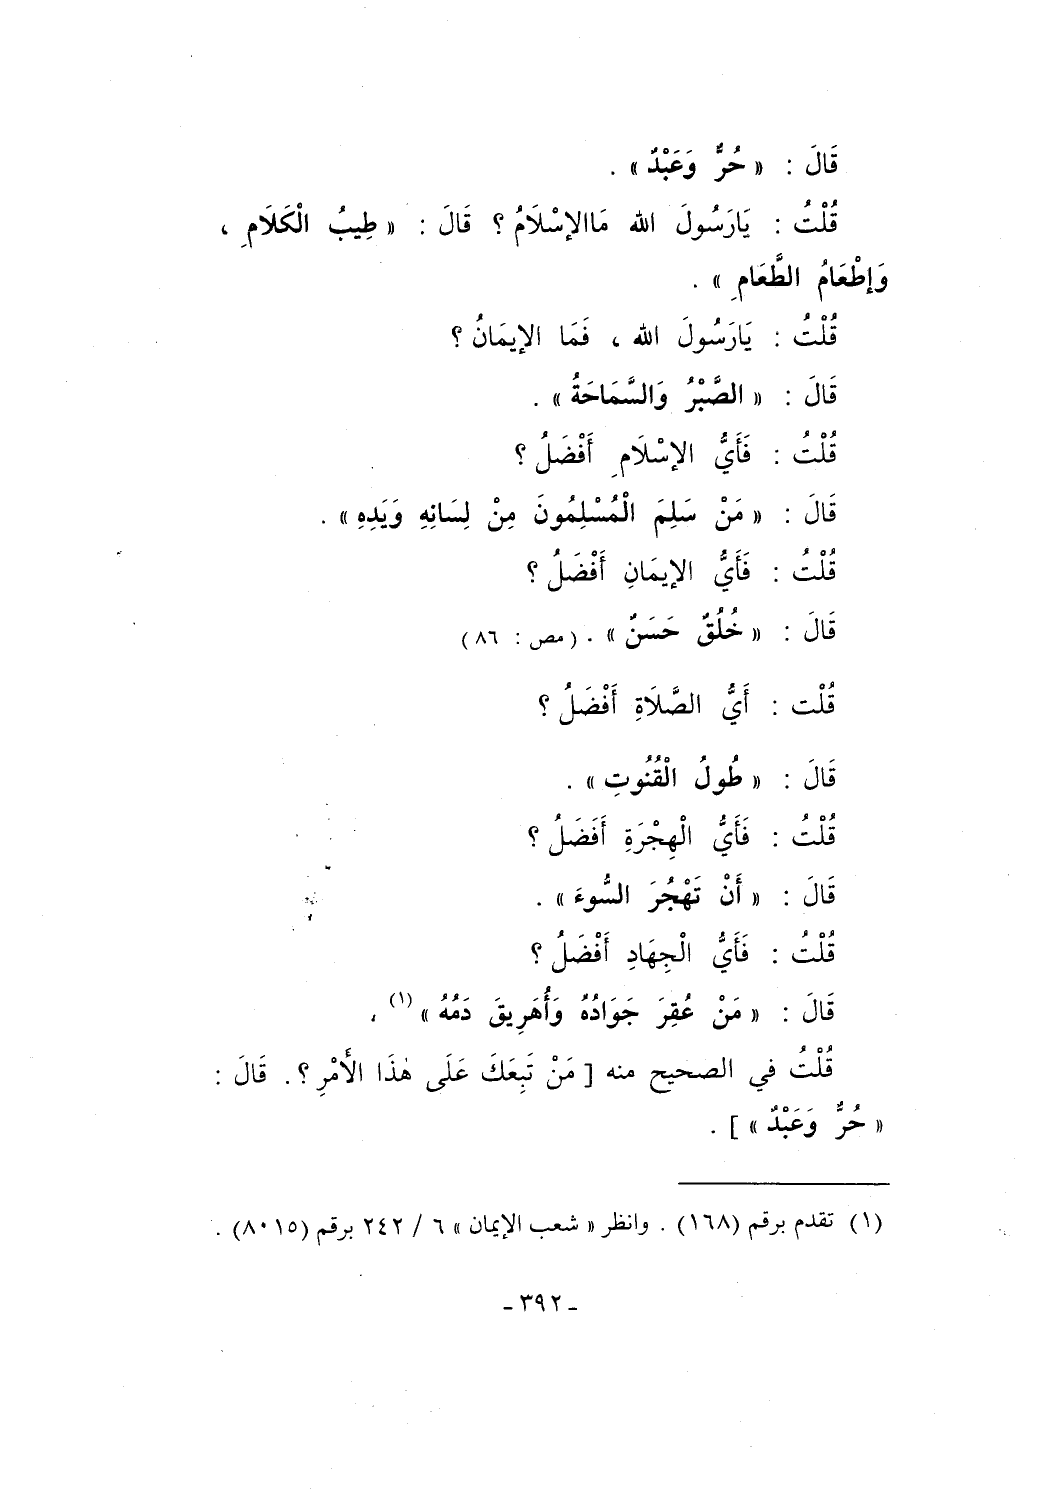 قَالَ : « حُرٌّ وَعَبْدٌ » .
قُلْتُ : يَارَسُولَ الله مَاالإسْلَامُ ؟ قَالَ : « طِيبُ الْكَلَامِ ،
وَإِطْعَامُ الطَّعَامِ » .
قُلْتُ : يَارَسُولَ الله ، فَمَا الإِيمَانُ ؟
قَالَ : « الصَّبْرُ وَالسَّمَاحَةُ » .
قُلْتُ : فَأَيُّ الإسْلَامِ أَفْضَلُ ؟
قَالَ : « مَنْ سَلِمَ الْمُسْلِمُونَ مِنْ لِسَانِهِ وَيَدِهِ » .
قُلْتُ : فَأَيُّ الإيمَانِ أَفْضَلُ ؟
قَالَ : « خُلُقٌ حَسَنٌ » . ( مص : ٨٦ )
قُلْت : أَيُّ الصَّلَاةِ أَفْضَلُ ؟
قَالَ : « طُولُ الْقُنُوتِ » .
قُلْتُ : فَأَيُّ الْهِجْرَةِ أَفَضَلُ ؟
قَالَ : « أَنْ تَهْجُرَ السُّوءَ » .
قُلْتُ : فَأَيُّ الْجِهَادِ أَفْضَلُ ؟
قَالَ : « مَنْ عُقِرَ جَوَادُهُ وَأُهَرِيقَ دَمُهُ » (١) ،
قُلْتُ في الصحيح منه [ مَنْ تَبِعَكَ عَلَى هٰذَا الأَمْرِ ؟ . قَالَ :
« حُرٌّ وَعَبْدٌ » ] .
(١) تقدم برقم (١٦٨) . وانظر « شعب الإيمان » ٦ / ٢٤٢ برقم (٨٠١٥) .
- ٣٩٢ -